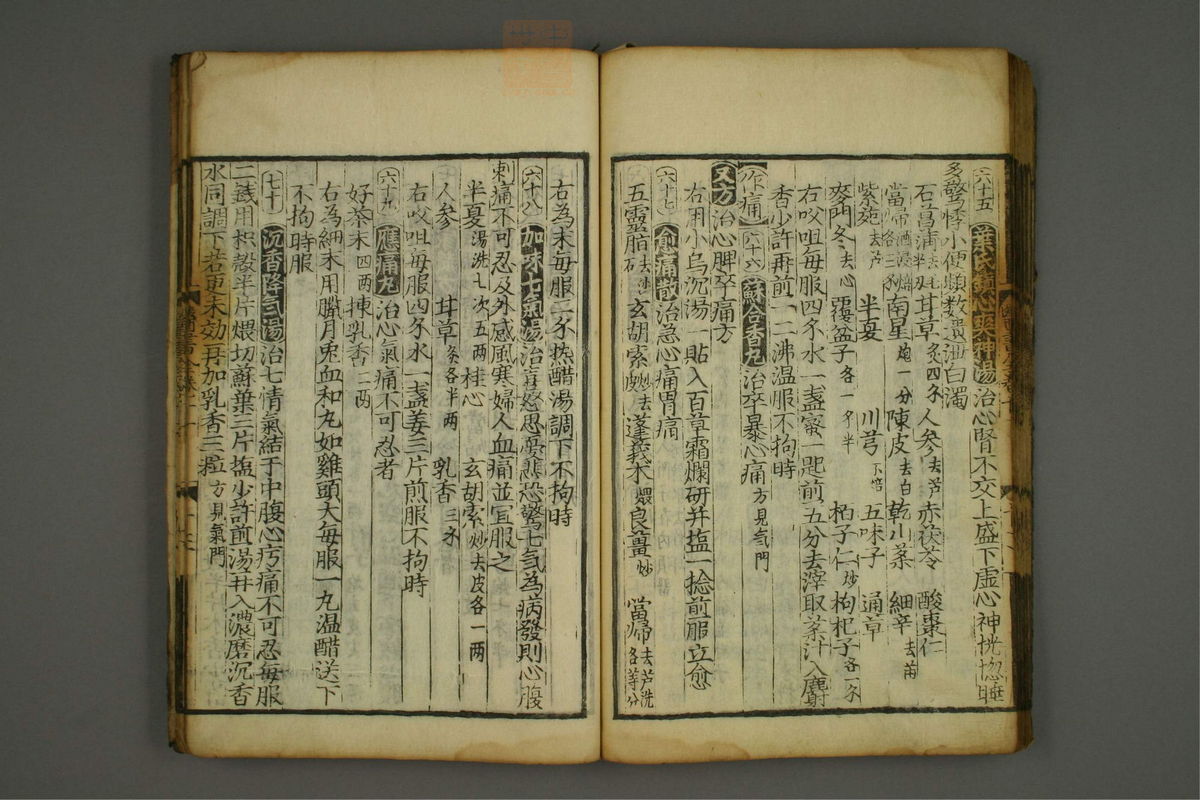 六十五 葉氏鎮心爽神湯治心腎不交上盛下虛心神恍惚睡
多驚悸小便頻數遺泄白濁
石菖蒲去毛半兩 甘草炙四分 人參去芦 赤茯苓 酸棗仁
當歸酒浸焙各三分 南星炮一分 陳皮去白 乾山藥 細辛去苗
紫菀去芦 半夏 川芎不焙 五味子 通草
麥門冬去心 覆盆子各一分半 柏子仁炒 枸杞子各一分
右㕮咀每服四分水一盞蜜一匙煎五分去滓取藥汁入麝
香少許再煎一二沸溫服不拘時
心痛 六十六 蘇合香丸治卒暴心痛方見氣門
又方治心脾卒痛方
右用小烏沉湯一貼入百草霜爛研并塩一捻煎服立愈
六十七 愈痛散治急心痛胃痛
五靈脂去沙石 玄胡索炒去皮 蓬莪朮煨 良薑炒 當歸去芦洗各等分
右為末每服二分热醋湯調下不拘時
六十八 加味七氣湯治喜怒思憂悲恐驚七氣為病發則心腹
刺痛不可忍及外感風寒婦人血痛並宜服之
半夏湯洗七次五兩 桂心 玄胡索炒去皮各一兩
人參 甘草炙各半兩 乳香三分
右㕮咀每服四分水一盞姜三片煎服不拘時
六十九 應痛丸治心氣痛不可忍者
好茶末四兩 揀乳香二兩
右為細末用臘月兎血和丸如雞頭大每服一丸温醋送下
不拘時服
七十 沉香降气湯治七情氣結于中腹心疞痛不可忍每服
二錢用枳殼半片煨切蘇葉三片塩少許煎湯并入濃磨沉香
水同調下若更未効再加乳香三粒方見氣門